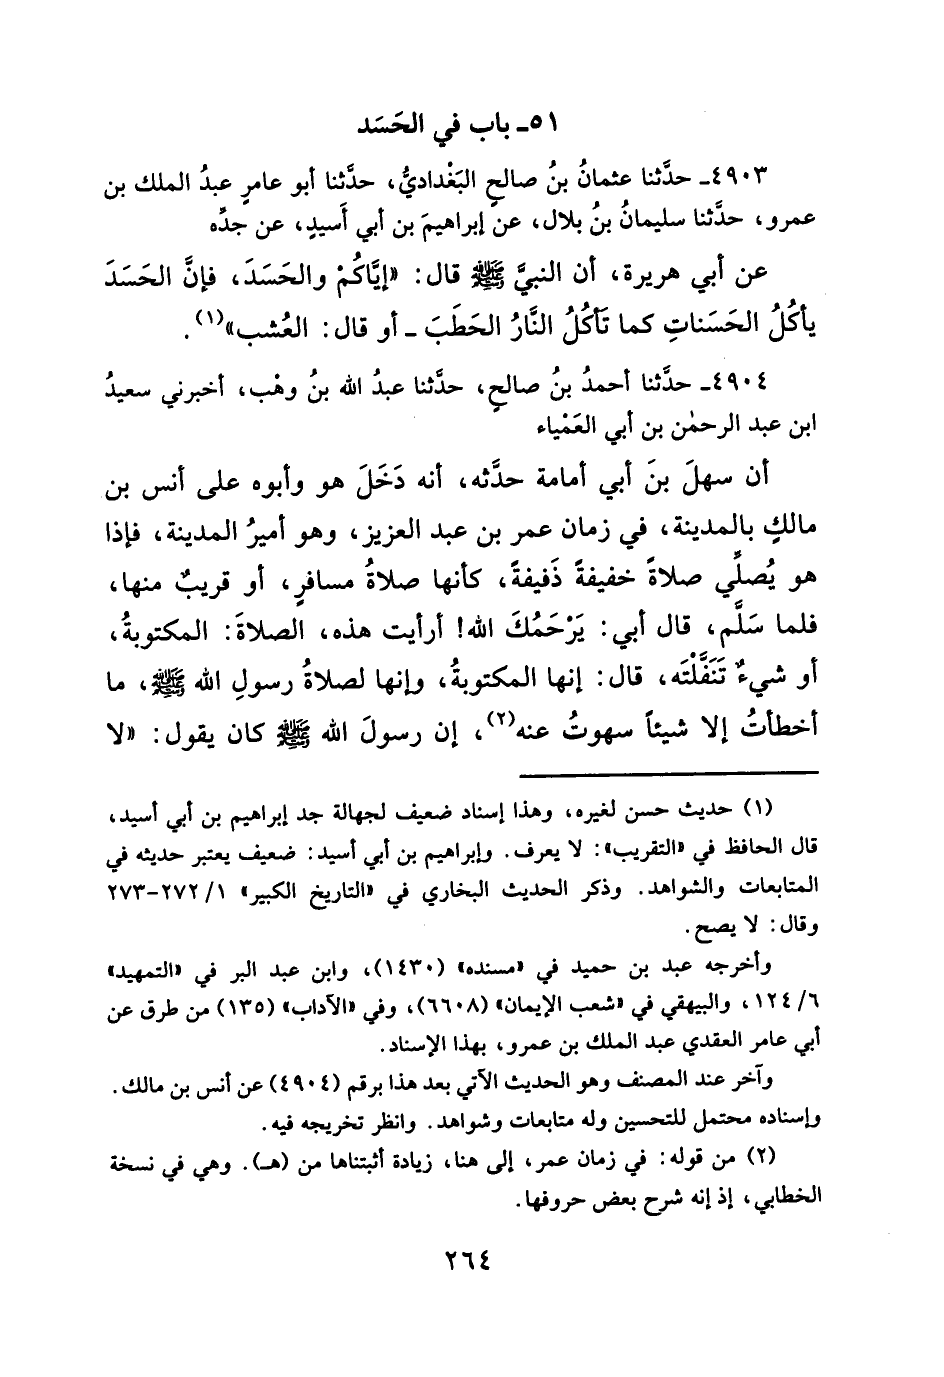 ٥١ـ باب في الحَسَد
٤٩٠٣ـ حدَّثنا عثمانُ بنُ صالحٍ البَغْداديُّ، حدَّثنا أبو عامرٍ عبدُ الملك بن
عمرو، حدَّثنا سليمانُ بنُ بلال، عن إبراهيمَ بن أبي أَسيدٍ، عن جدِّه
عن أبي هريرة، أن النبيَّ ﷺ قال: «إيَّاكُمْ والحَسَدَ، فإنَّ الحَسَدَ
يأكُلُ الحَسَناتِ كما تَأكُلُ النَّارُ الحَطَبَ ـ أو قال: العُشب»(١).
٤٩٠٤ـ حدَّثنا أحمدُ بنُ صالحٍ، حدَّثنا عبدُ الله بنُ وهْب، أخبرني سعيدُ
ابن عبد الرحمٰن بن أبي العَمْياء
أن سهلَ بنَ أبي أمامة حدَّثه، أنه دَخَلَ هو وأبوه على أنس بن
مالكٍ بالمدينة، في زمان عمر بن عبد العزيز، وهو أميرُ المدينة، فإذا
هو يُصلِّي صلاةً خفيفةً ذَفيفةً، كأنها صلاةُ مسافرٍ، أو قريبٌ منها،
فلما سَلَّم، قال أبي: يَرْحَمُكَ اللهُ! أرأيت هذه، الصلاةَ: المكتوبةُ،
أو شيءٌ تَنَفَّلْتَه، قال: إنها المكتوبةُ، وإنها لصلاةُ رسولِ الله ﷺ، ما
أخطأتُ إلا شيئاً سهوتُ عنه(٢)، إن رسولَ الله ﷺ كان يقول: «لا
(١) حديث حسن لغيره، وهذا إسناد ضعيف لجهالة جد إبراهيم بن أبي أسيد،
قال الحافظ في «التقريب»: لا يعرف. وإبراهيم بن أبي أسيد: ضعيف يعتبر حديثه في
المتابعات والشواهد. وذكر الحديث البخاري في «التاريخ الكبير» ١/ ٢٧٢-٢٧٣
وقال: لا يصح.
وأخرجه عبد بن حميد في «مسنده» (١٤٣٠)، وابن عبد البر في «التمهيد»
٦/ ١٢٤، والبيهقي في «شعب الإيمان» (٦٦٠٨)، وفي «الآداب» (١٣٥) من طرق عن
أبي عامر العقدي عبد الملك بن عمرو، بهذا الإسناد.
وآخر عند المصنف وهو الحديث الآتي بعد هذا برقم (٤٩٠٤) عن أنس بن مالك.
وإسناده محتمل للتحسين وله متابعات وشواهد. وانظر تخريجه فيه.
(٢) من قوله: في زمان عمر، إلى هنا، زيادة أثبتناها من (هـ). وهي في نسخة
الخطابي، إذ إنه شرح بعض حروفها.
٢٦٤